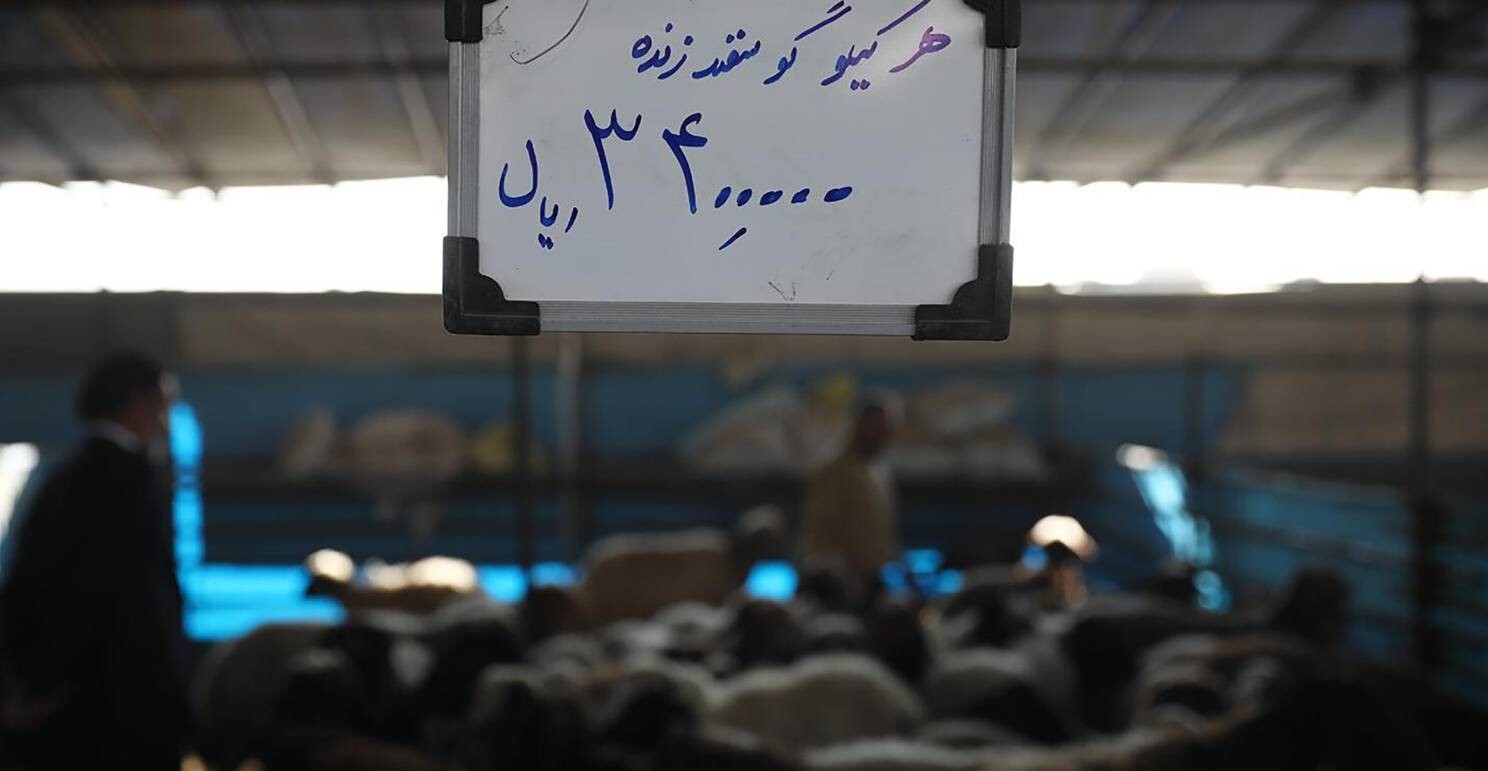 هر کیلو گوسفند زنده
۳۴۰۰,۰۰۰ ریال